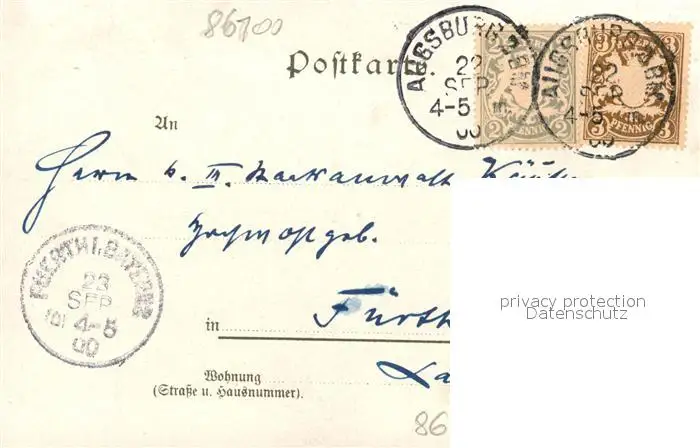 86100
Postkarte
AUGSBURG 2
22
SEP
4-5
00
2 2
2 PFENNIG 2
AUGSBURG
22
SEP
4-5
00
3 3
3 PFENNIG 3
An
Herrn k. II. Staatsanwalt
Hochwohlgeb.
FUERTH I. BAYERN
22
SEP
4-5
00
in Fürth
Wohnung
(Straße u. Hausnummer).
privacy protection
Datenschutz
86